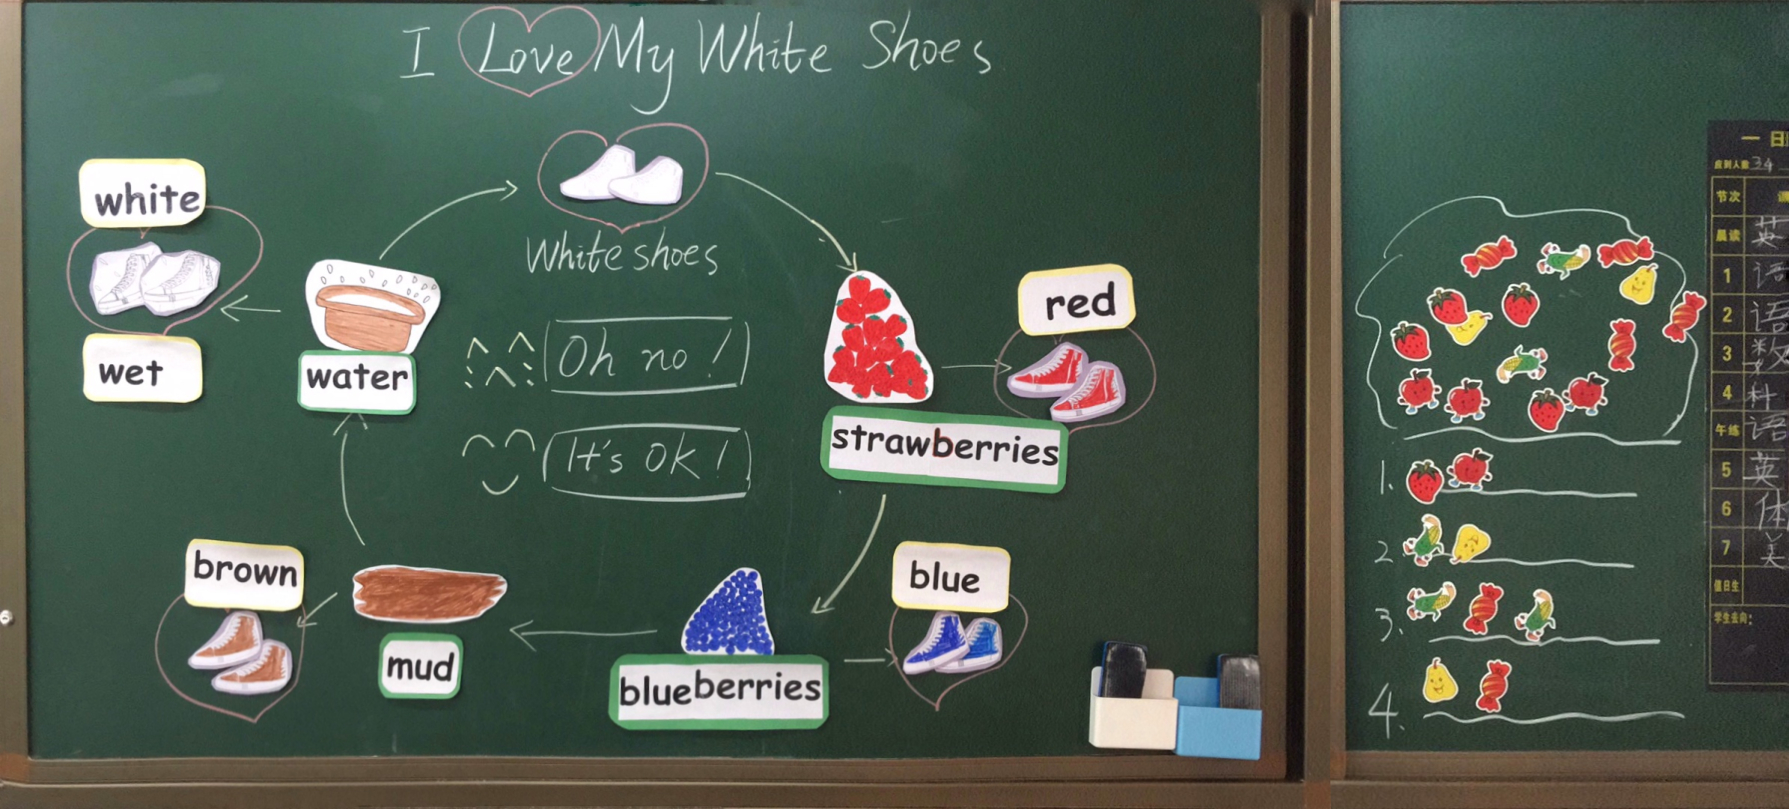 I Love My White Shoes
White shoes
white
wet
water
Oh no!
It's OK!
red
strawberries
blue
blueberries
brown
mud
1.
2
3.
4.
一日
应到人数 34
节次 课
晨读 英
1 语
2 语
3 数
4
午练 语
5 英
6 体
7 美
值日生